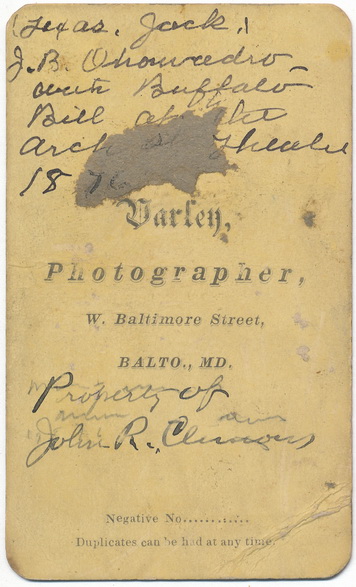 (Texas. Jack.)
J.B. Ohomwdro
with Buffalo
Bill at the
Arch St Theatre
1876
Varley,
Photographer,
W. Baltimore Street,
BALTO., MD.
Property of
John R. Clemons
Negative No............
Duplicates can be had at any time.